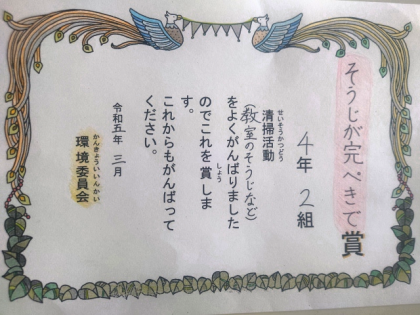 そうじが完ぺきで賞
4年 2組
清掃活動
(教室のそうじなど)
をよくがんばりました
のでこれを賞しま
す。
これからもがんばって
ください。
令和五年 三月
環境委員会
せいそうかつどう
しょう
かんきょういいんかい